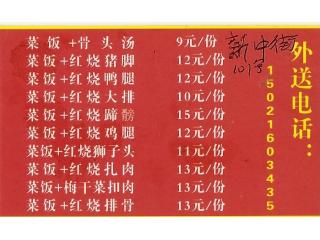 菜饭+骨头汤 9元/份
菜饭+红烧猪脚 12元/份
菜饭+红烧鸭腿 12元/份
菜饭+红烧大排 10元/份
菜饭+红烧蹄髈 15元/份
菜饭+红烧鸡腿 12元/份
菜饭+红烧狮子头 11元/份
菜饭+红烧扎肉 13元/份
菜饭+梅干菜扣肉 13元/份
菜饭+红烧排骨 13元/份
新中街
101号
外送电话：
15021603435